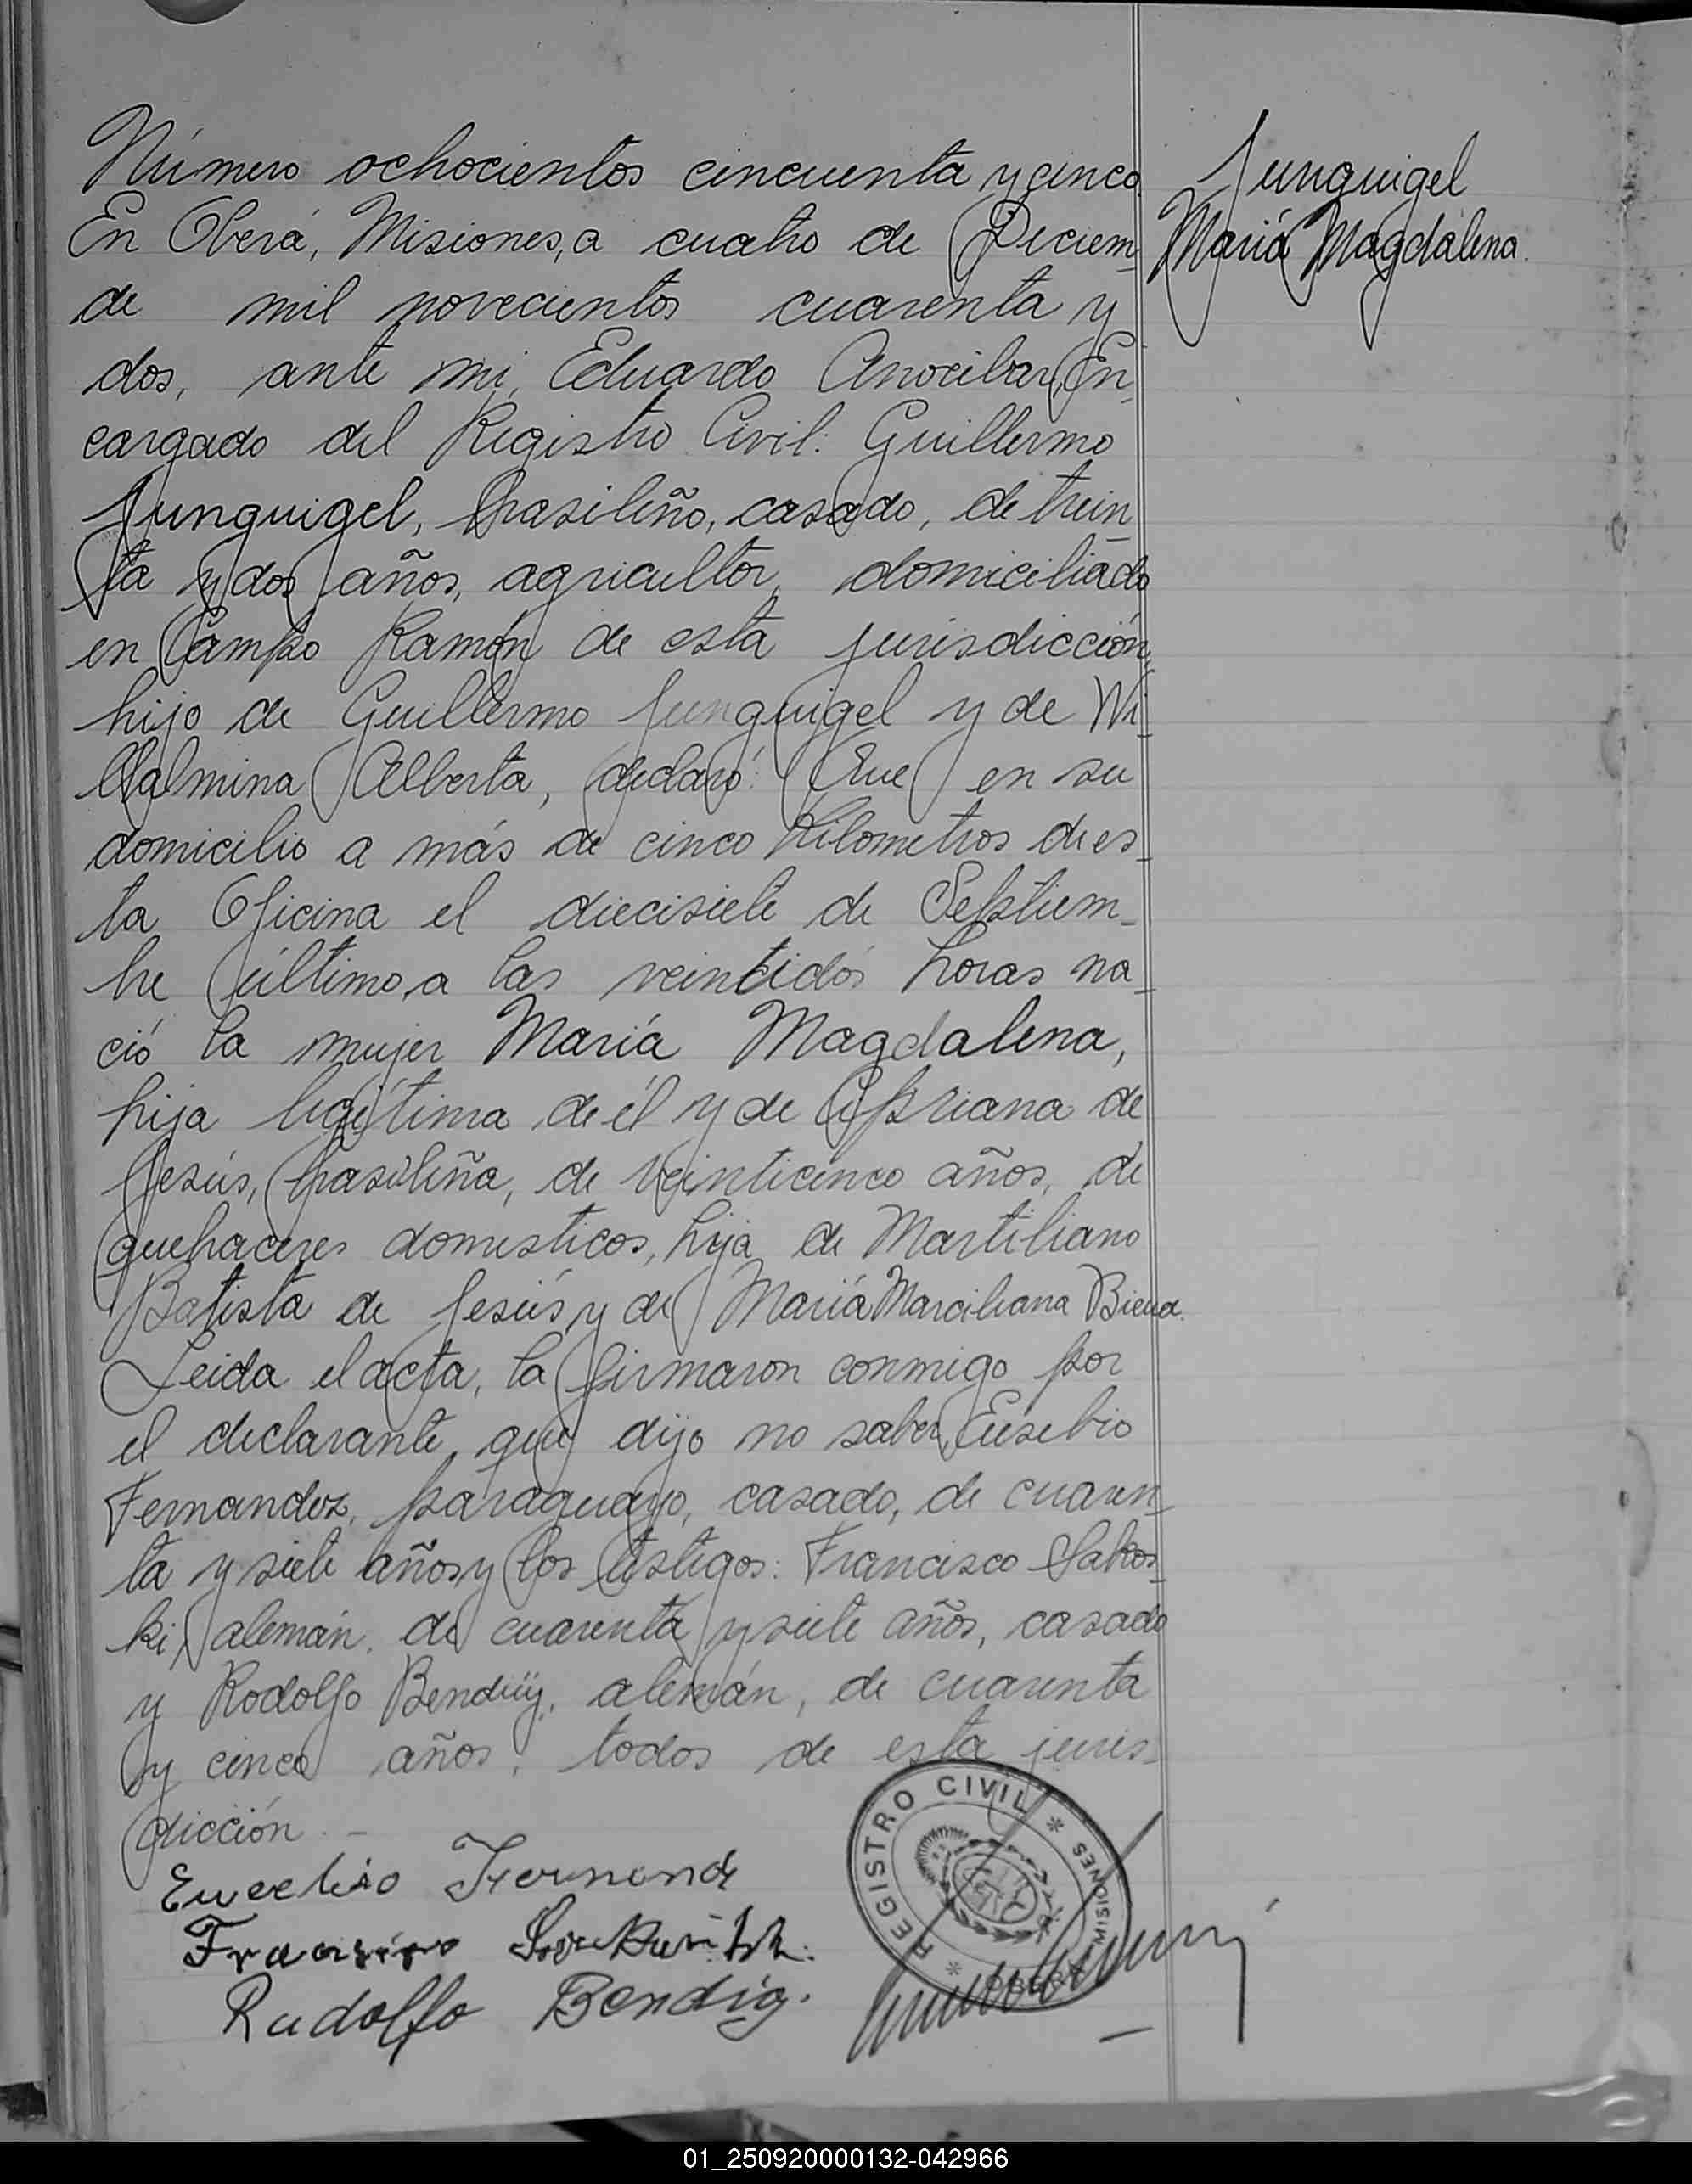 Número ochocientos cincuenta y cinco.
Junguigel
María Magdalena.
En Oberá, Misiones, a cuatro de Diciem-
de mil novecientos cuarenta y
dos, ante mi, Eduardo Anocibar, En-
cargado del Registro Civil: Guillermo
Junguigel, brasileño, casado, de trein-
ta y dos años, agricultor, domiciliado
en Campo Ramón de esta jurisdicción,
hijo de Guillermo Junguigel y de Wi-
llalmina Alberta, declaró: Que en su
domicilio a más de cinco kilometros de es-
ta Oficina el diecisiete de Septiem-
bre último, a las veintidós horas na-
ció la mujer María Magdalena,
hija legítima de él y de Cipriana de
Jesús, brasileña, de veinticinco años, de
quehaceres domesticos, hija de Martiliano
Batista de Jesús y de María Marciliana
Leida el acta, la firmaron conmigo por
el declarante, que dijo no saber, Eusebio
Fernandez, paraguayo, casado, de cuaren-
ta y siete años y los testigos: Francisco
ki, alemán, de cuarenta y siete años, casado
y Rodolfo alemán, de cuarenta
y cinco años, todos de esta juris-
dicción.-
Rudolfo Bendig.
REGISTRO CIVIL * MISIONES * OBERÁ
01_250920000132-042966